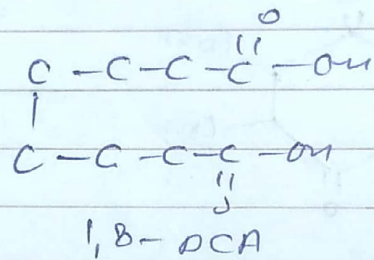 O
C - C - C - C - OH
C - C - C - C - OH
O
1,8 - DCA